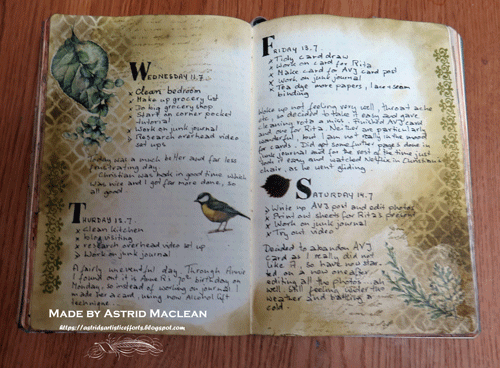 WEDNESDAY 11.7.
x Clean bedroom
x Make up grocery list
x Do big grocery shop
x Start on corner pocket tutorial
x Work on junk journal
x Research overhead video set ups
Today was a much better and far less
frustrating day.
Christian was back in good time which
was nice and I got far more done, so
all good.
THURSDAY 12.7.
x Clean kitchen
x blog visiting
x research overhead video set up
> Work on junk journal
A fairly uneventful day. Through Annie
I found out it is Aunt R's 70th birthday on
Monday, so instead of working on journal I
made her a card, using new alcohol lift
technique.
FRIDAY 13.7.
x Tidy card draw
x Work on card for Rita
x Make card for AVJ card post
x Work on junk journal
x Tea dye more papers, lace + seam
binding
Woke up not feeling very well, throat ache
etc, so decided to take it easy and gave
cleaning a miss. Finished AVJ card
and one for Rita. Neither are particularly
wonderful, but I am not really in the mood
for cards. Did get some further pages done in
junk journal and for the rest of the time just
took it easy and watched Netflix in Christian's
chair, as he went gliding.
SATURDAY 14.7.
> Write up AVJ post and edit photos
x Print out sheets for Rita's present
x Work on junk journal
x Try out video
Decided to abandon AVJ
card as I really did not
like it, so have now star-
ted on a new one after
editing all the photos - ah
well. Still feeling under the
weather and battling a
cold.
MADE BY ASTRID MACLEAN
https://astridsartisticefforts.blogspot.com